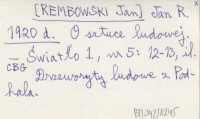 [REMBOWSKI Jan] Jan R.
1920 d. O sztuce ludowej.
— Światło 1, nr 5: 12-13, il.
CBG Drzeworyty ludowe z Pod-
hala.